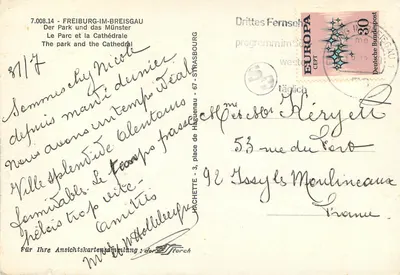 7.008.14 - FREIBURG-IM-BREISGAU
Der Park und das Münster
Le Parc et la Cathédrale
The park and the Cathedral
31/7
Sommes chez Nicole
depuis mardi dernier
Nous avons un temps idéal
Ville splendide alentours
formidables le temps passe
hélas trop vite
Amitiés
HACHETTE - 3, place de Haguenau - 67 - STRASBOURG
Für Ihre Ansichtskartensammlung:
Drittes Fernseh
programm im
täglich
EUROPA
CEPT
30
Deutsche Bundespost
Mme et Mr
53 rue du Port
92 Issy les Moulineaux
France